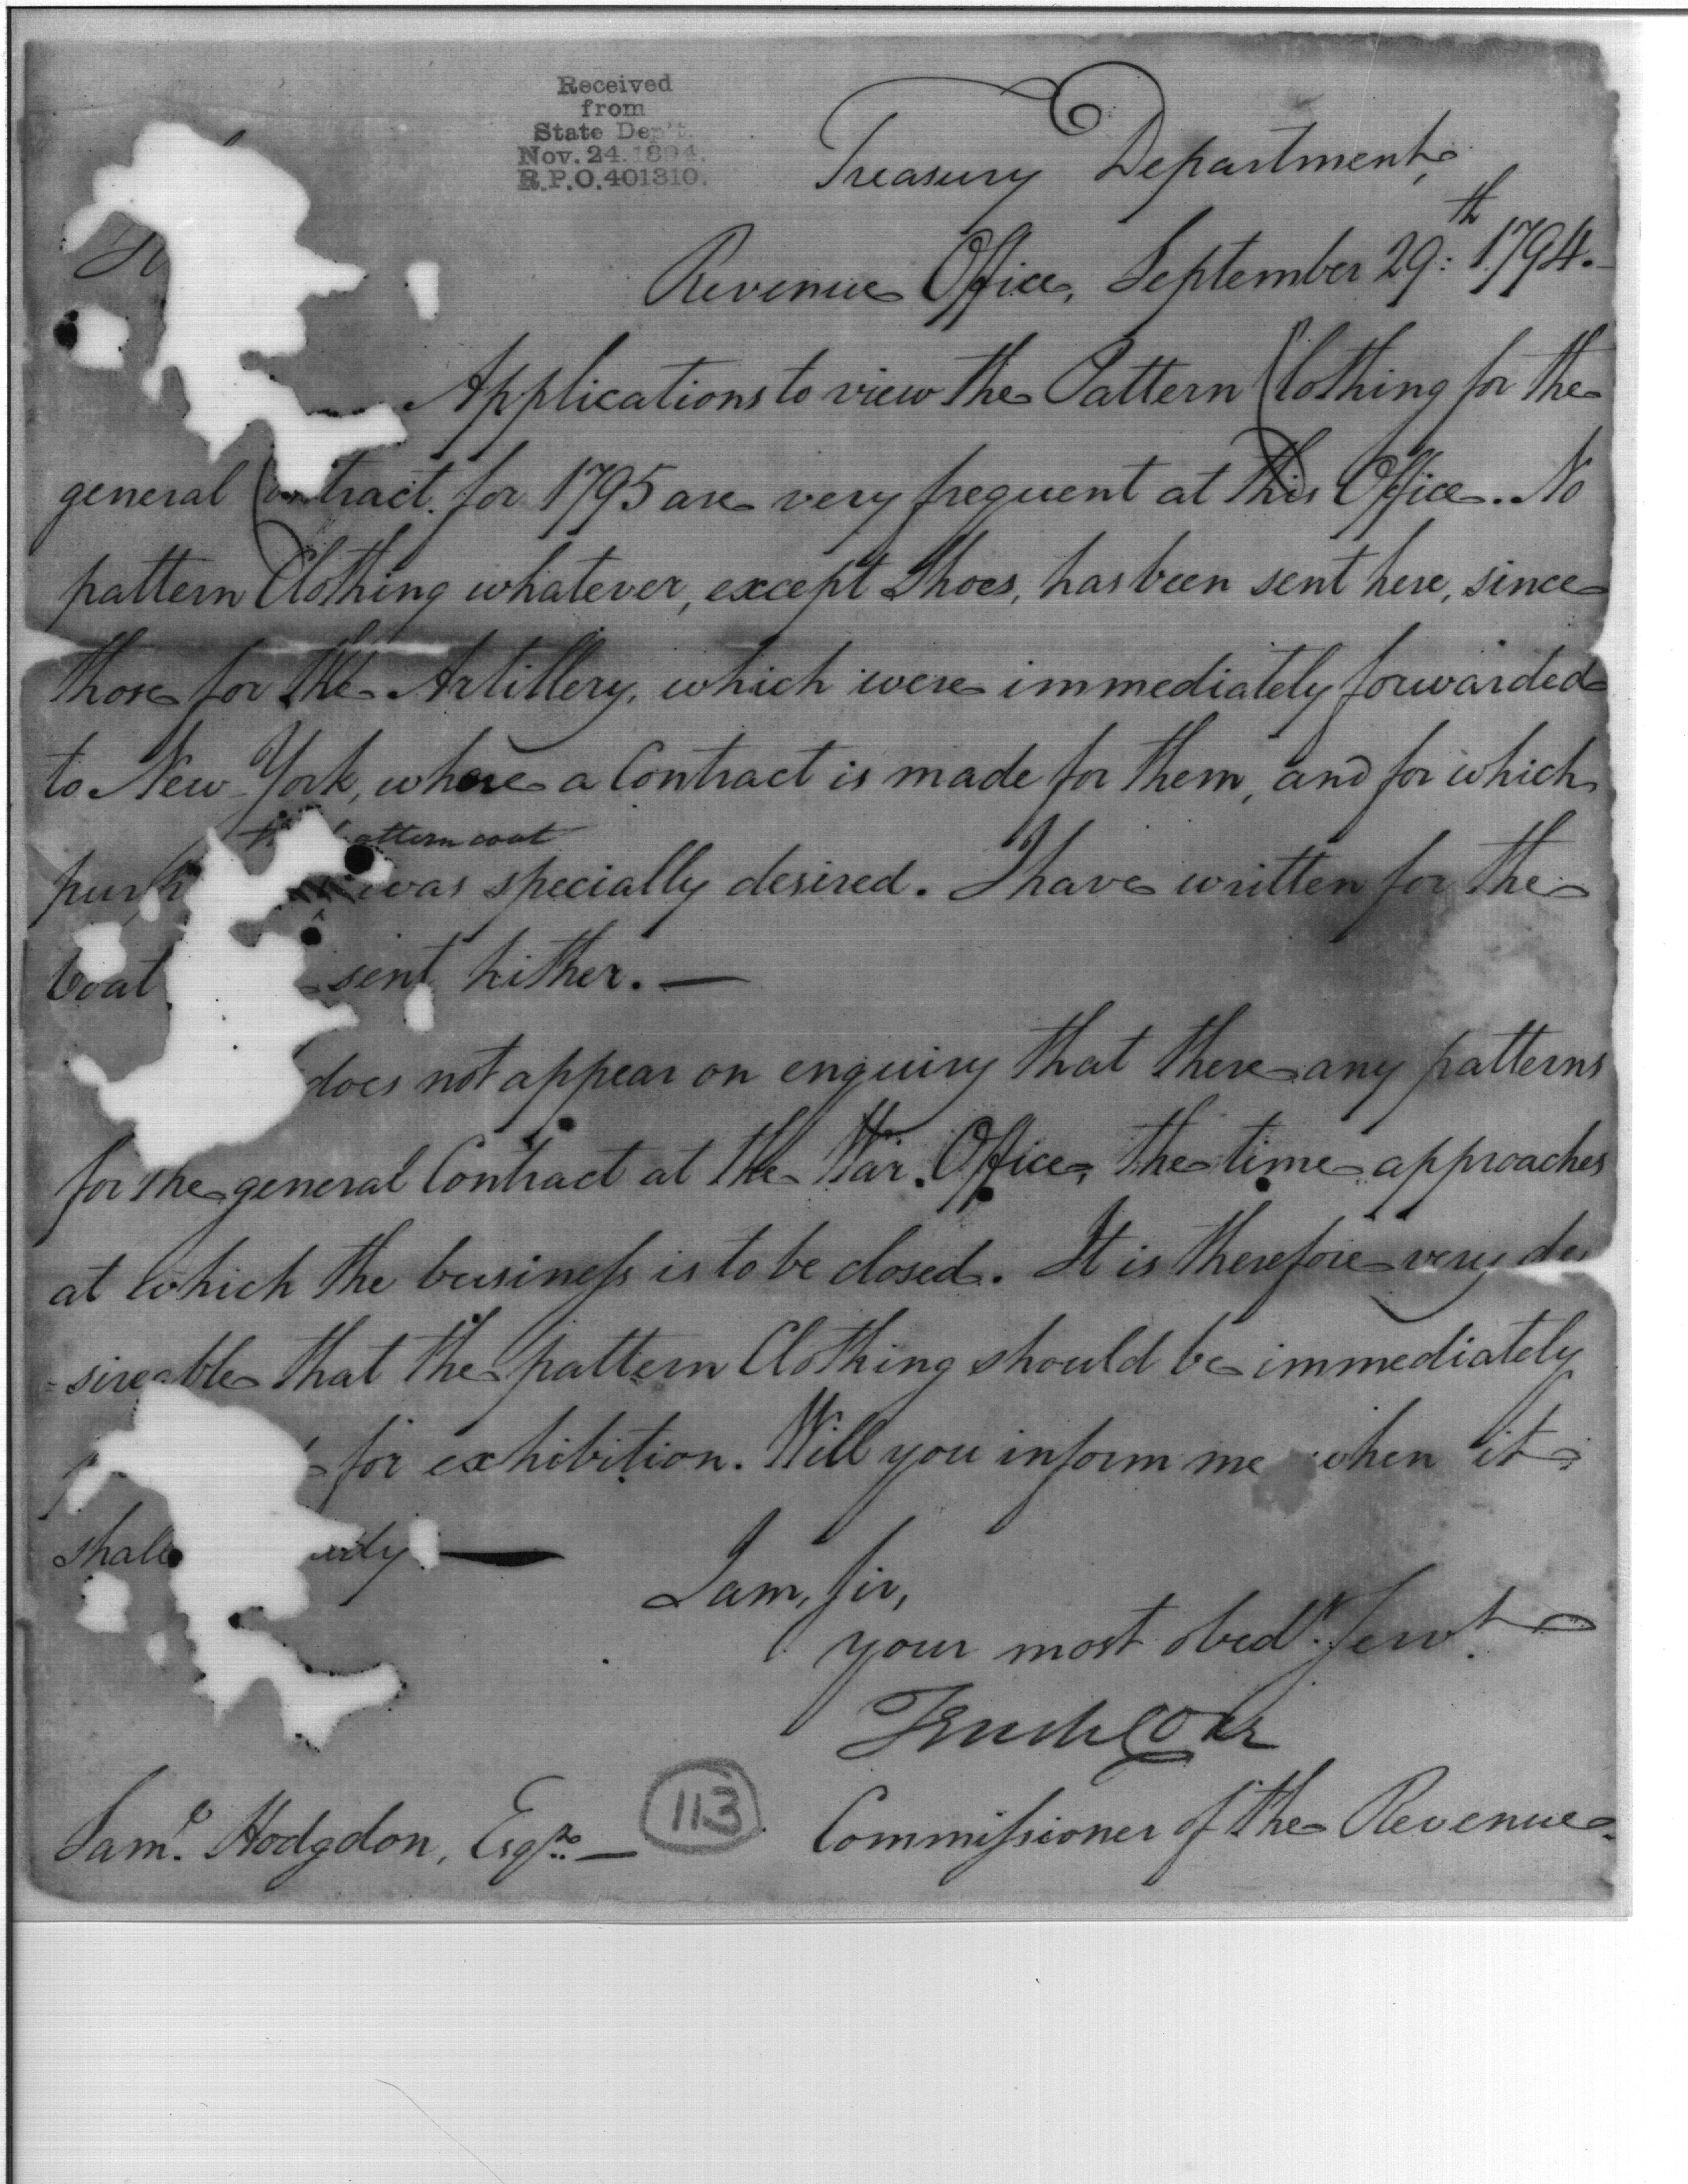 Received
from
State Dep't.
Nov. 24. 1894.
R.P.O. 401310.
Treasury Department,
Revenue Office, September 29:th 1794.
Applications to view the Pattern Clothing for the
general Contract for 1795 are very frequent at this Office. No
pattern Clothing whatever, except Shoes, has been sent here, since
those for the Artillery, which were immediately forwarded
to New York, where a Contract is made for them, and for which
pattern coat
was specially desired. I have written for the
Coat sent hither. —
does not appear on enquiry that there any patterns
for the general Contract at the War Office, the time approaches
at which the business is to be closed. It is therefore very de
=sireable that the pattern Clothing should be immediately
for exhibition. Will you inform me when it
shall
I am, Sir,
your most obedt. Servt.
Tench Coxe
Saml. Hodgdon, Esqre. —
113
Commissioner of the Revenue.